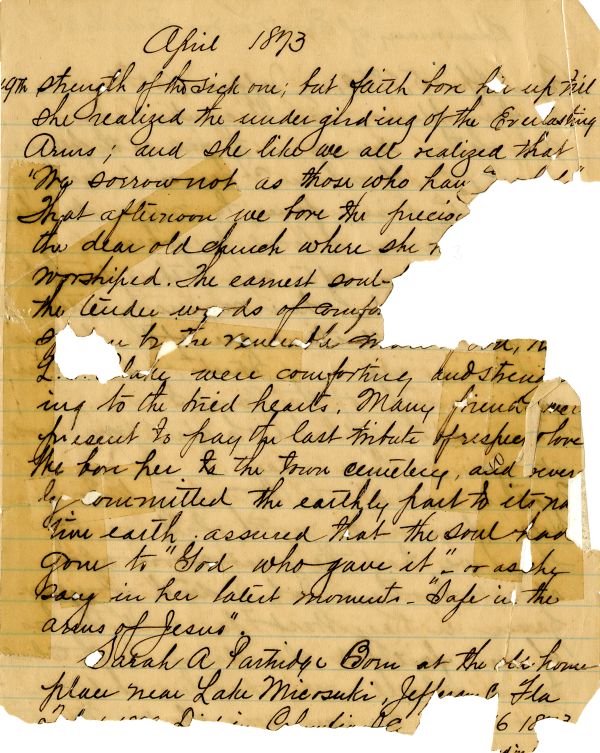 April 1873
9th strength of the sick one; but faith bore her up till
she realized the undergirding of the Everlasting
Arms; and she like we all realized that
"We sorrow not as those who have
That afternoon we bore the precious
the dear old church where she
worshiped. The earnest soul-
the tender words of comfor
by the venerable
were comforting and streng
ing to the tried hearts. Many friends were
present to pay the last tribute of respect & love
We bore her to the town cemetery, and rever
ly committed the earthly part to its na
tive earth, assured that the soul had
gone to "God who gave it" - or as she
sang in her latest moments - "Safe in the
arms of Jesus".
Sarah A Partridge Born at the old home
place near Lake Micosuki, Jefferson C Fla
Died in Columbia